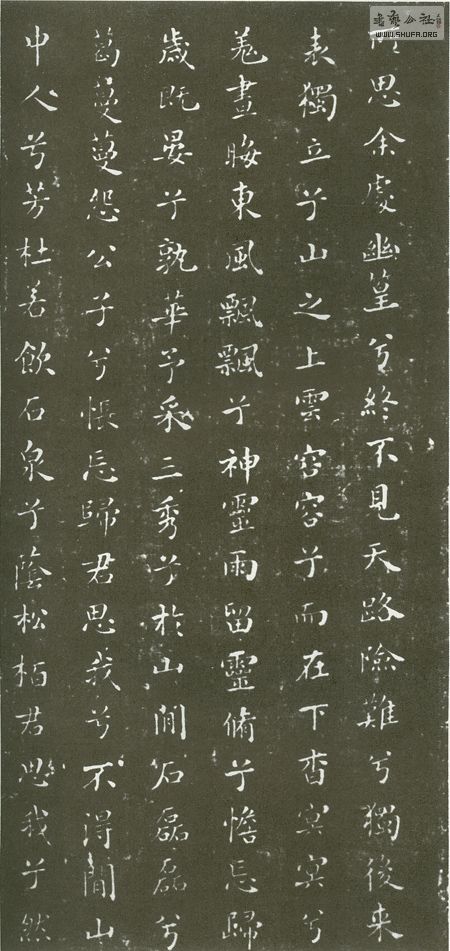 所思余處幽篁兮終不見天路險難兮獨後来
表獨立兮山之上雲容容兮而在下杳冥冥兮
羗晝晦東風飄飄兮神靈雨留靈脩兮憺忘歸
歳既晏兮孰華予采三秀兮於山間石磊磊兮
葛蔓蔓怨公子兮悵忘歸君思我兮不得閒山
中人兮芳杜若飲石泉兮蔭松栢君思我兮然
WWW.SHUFA.ORG